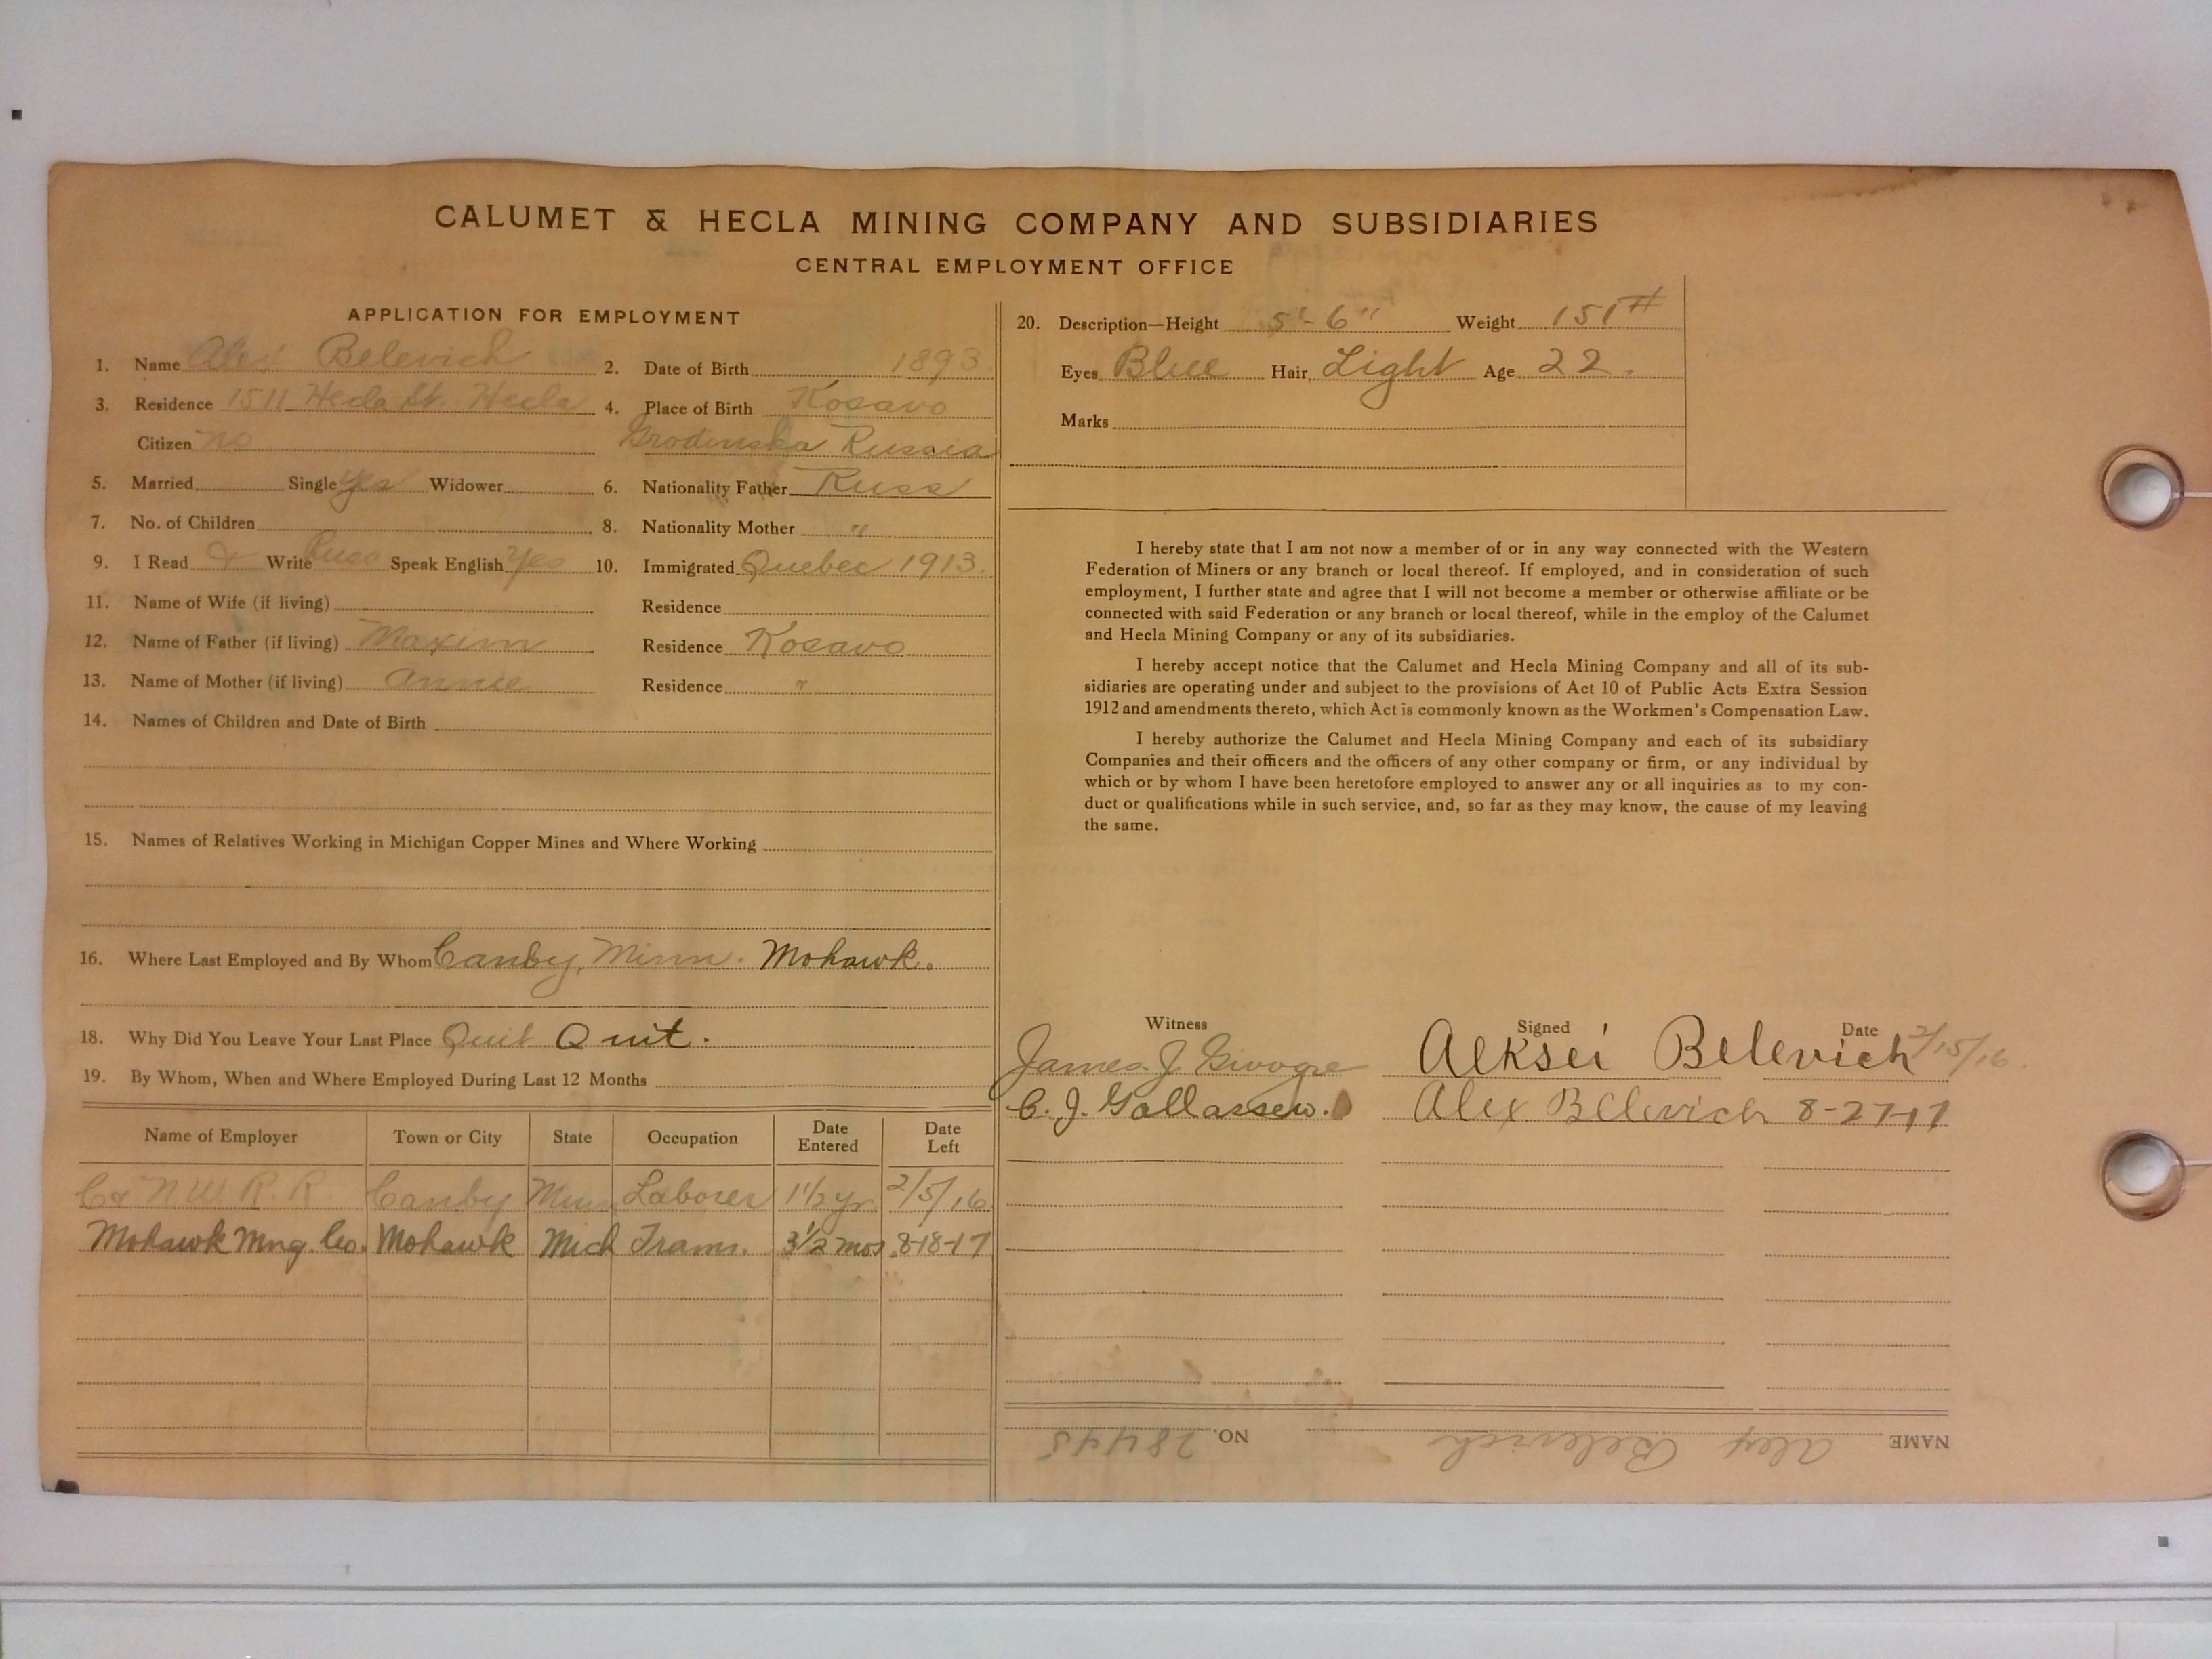 CALUMET & HECLA MINING COMPANY AND SUBSIDIARIES
CENTRAL EMPLOYMENT OFFICE
APPLICATION FOR EMPLOYMENT
1. Name Alex Belevich 2. Date of Birth 1893
3. Residence 1511 Hecla St. Hecla 4. Place of Birth Kosavo
Citizen no Grodinska Russia
5. Married Single yes Widower 6. Nationality Father Russ
7. No. of Children 8. Nationality Mother "
9. I Read & Write Russ Speak English Yes 10. Immigrated Quebec 1913.
11. Name of Wife (if living) Residence
12. Name of Father (if living) Maxim Residence Kosavo
13. Name of Mother (if living) Annie Residence "
14. Names of Children and Date of Birth
15. Names of Relatives Working in Michigan Copper Mines and Where Working
16. Where Last Employed and By Whom Canby, Minn. Mohawk.
18. Why Did You Leave Your Last Place Quit Quit.
19. By Whom, When and Where Employed During Last 12 Months
Name of Employer Town or City State Occupation Date Entered Date Left
C & N W. R. R. Canby Minn Laborer 1 1/2 yr. 2/5/16
Mohawk Mng. Co. Mohawk Mich Tram. 3 1/2 mos 8-18-17
20. Description—Height 5'-6" Weight 151#
Eyes Blue Hair Light Age 22.
Marks
I hereby state that I am not now a member of or in any way connected with the Western
Federation of Miners or any branch or local thereof. If employed, and in consideration of such
employment, I further state and agree that I will not become a member or otherwise affiliate or be
connected with said Federation or any branch or local thereof, while in the employ of the Calumet
and Hecla Mining Company or any of its subsidiaries.
I hereby accept notice that the Calumet and Hecla Mining Company and all of its sub-
sidiaries are operating under and subject to the provisions of Act 10 of Public Acts Extra Session
1912 and amendments thereto, which Act is commonly known as the Workmen's Compensation Law.
I hereby authorize the Calumet and Hecla Mining Company and each of its subsidiary
Companies and their officers and the officers of any other company or firm, or any individual by
which or by whom I have been heretofore employed to answer any or all inquiries as to my con-
duct or qualifications while in such service, and, so far as they may know, the cause of my leaving
the same.
Witness Signed Date
James J. Aleksei Belevich 2/15/16
C. J. Alex Belevich 8-27-17
NAME Alex Belevich NO. 28445